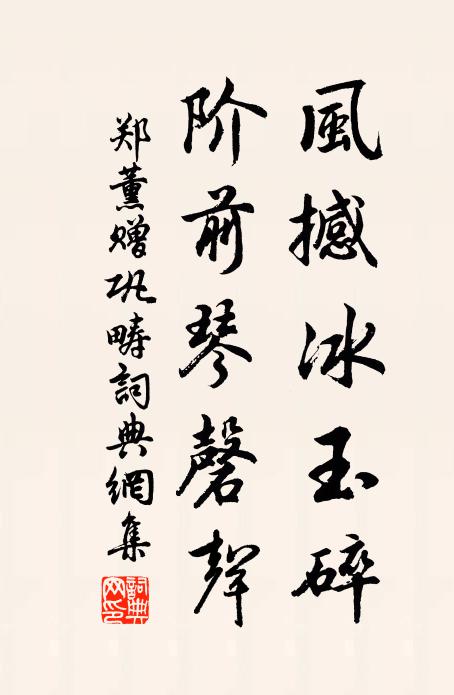 風撼冰玉碎
阶前琴磬聲
郑薰赠巩畴詞典網集
詞典网印